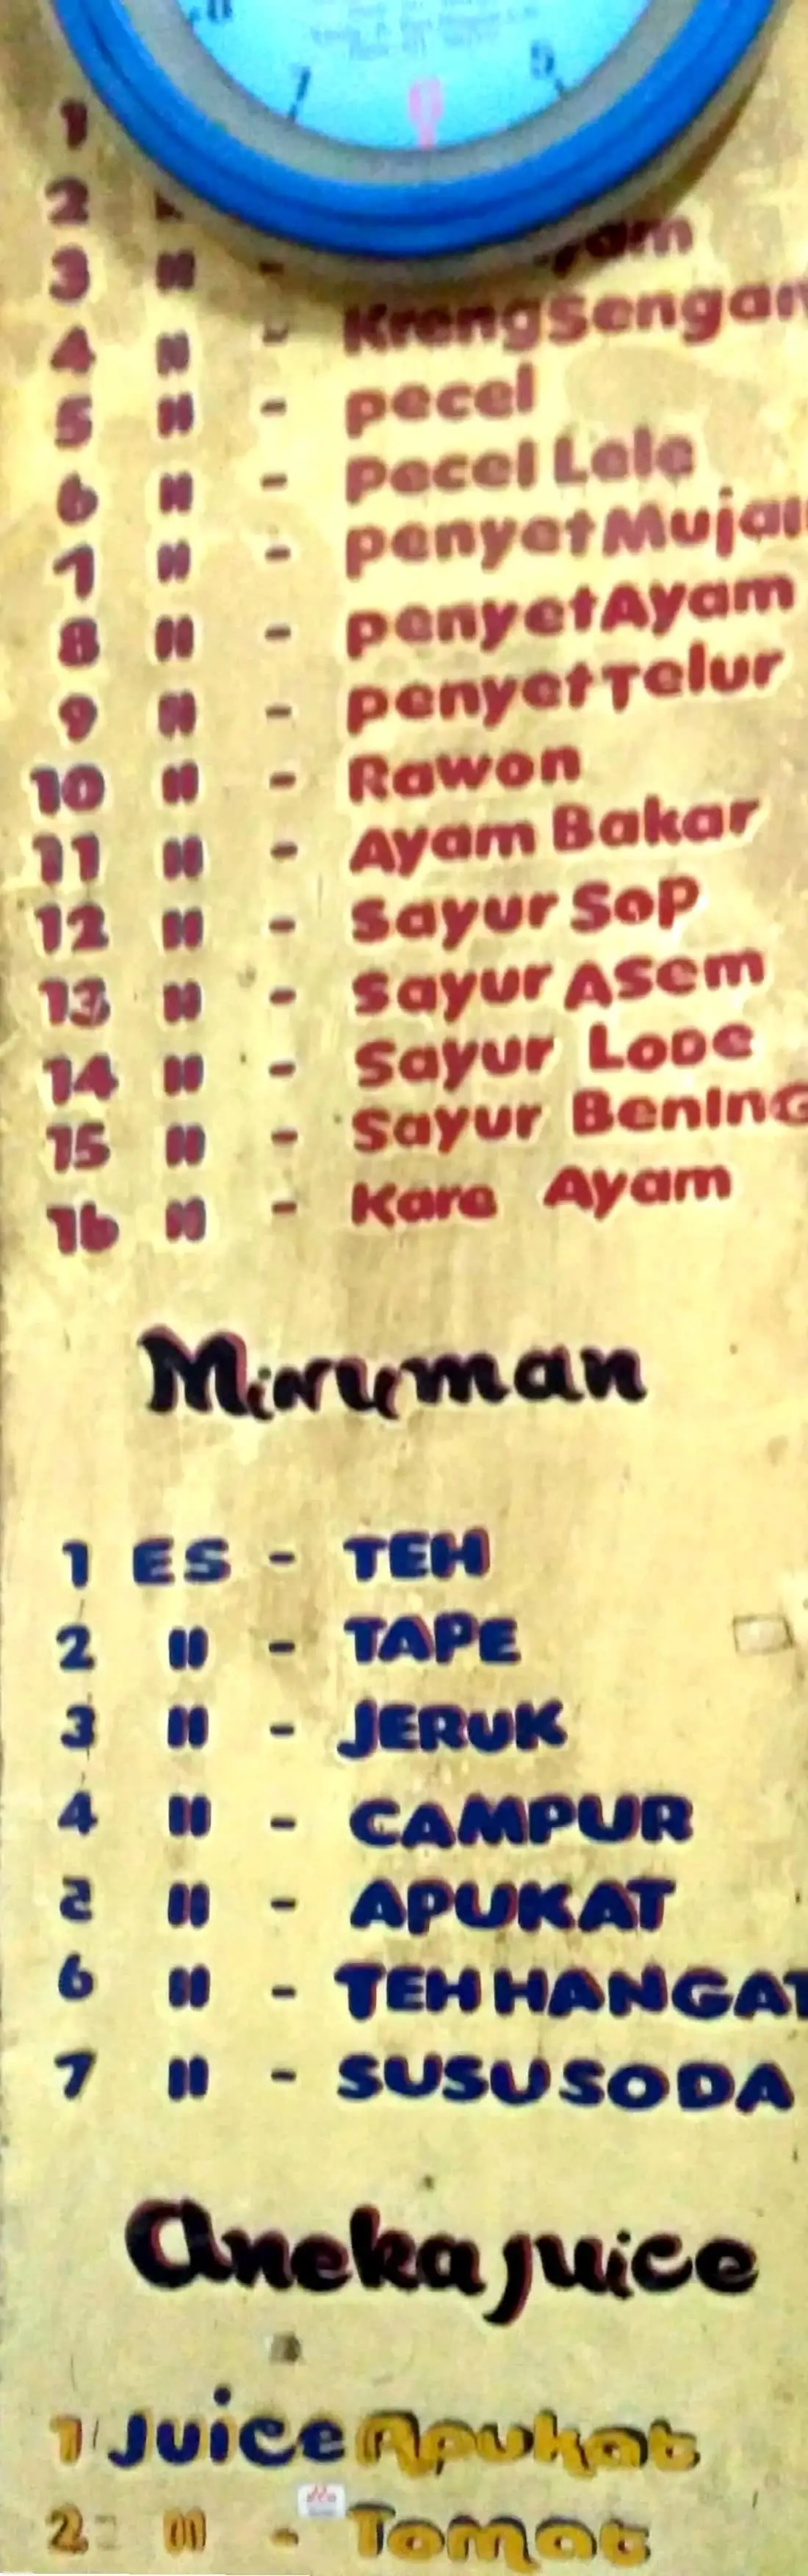 8
7
6
5
1
2 "
3 " - yam
4 " - Krengsengan
5 " - pecel
6 " - pecel Lele
7 " - penyet Mujai
8 " - penyet Ayam
9 " - penyet Telur
10 " - Rawon
11 " - Ayam Bakar
12 " - Sayur Sop
13 " - Sayur Asem
14 " - Sayur Lode
15 " - Sayur Bening
16 " - Kare Ayam
Minuman
1 ES - TEH
2 " - TAPE
3 " - JERUK
4 " - CAMPUR
5 " - APUKAT
6 " - TEH HANGAT
7 " - SUSU SODA
Aneka juice
1 Juice Apukat
2 " - Tomat